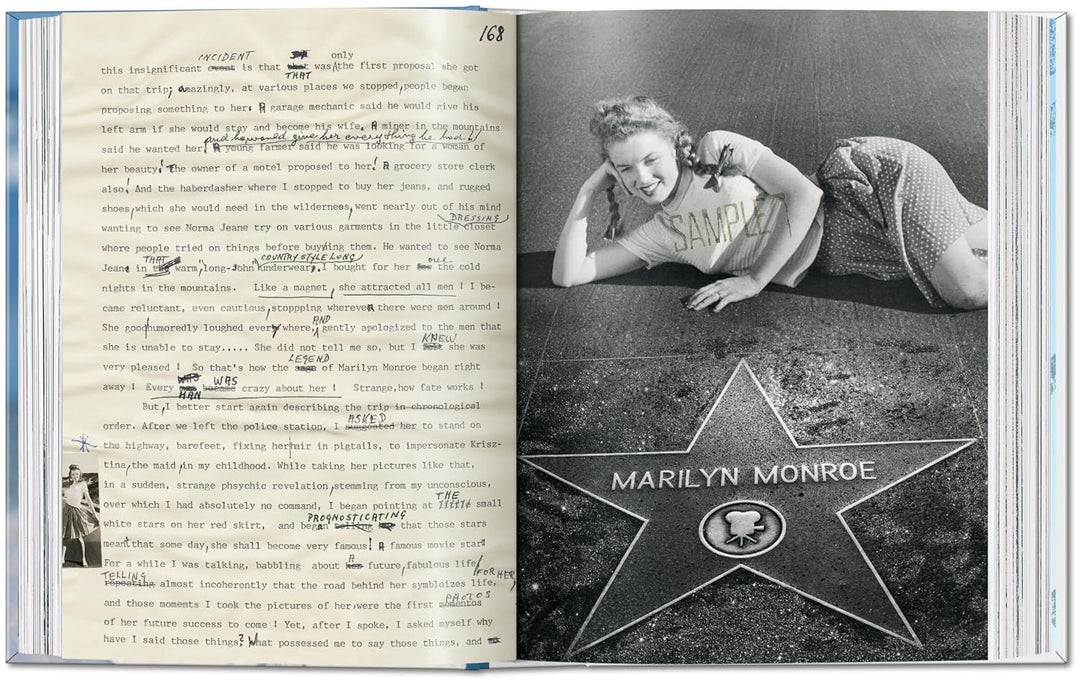 168
INCIDENT only
this insignificant event is that that was the first proposal she got
THAT
on that trip; amazingly, at various places we stopped, people began
proposing something to her! A garage mechanic said he would give his
left arm if she would stay and become his wife. A miner in the mountains
and he would give her everything he had!
said he wanted her! A young farmer said he was looking for a woman of
her beauty! The owner of a motel proposed to her! A grocery store clerk
also! And the haberdasher where I stopped to buy her jeans, and rugged
shoes, which she would need in the wilderness, went nearly out of his mind
DRESSING
wanting to see Norma Jeane try on various garments in the little closet
where people tried on things before buying them. He wanted to see Norma
THAT COUNTRY STYLE LONG one
Jeane in the warm, long-John underwear, I bought for her for the cold
nights in the mountains. Like a magnet, she attracted all men ! I be-
came reluctant, even cautious, stoppping wherever there were men around !
AND
She goodhumoredly loughed every where, gently apologized to the men that
KNEW
she is unable to stay..... She did not tell me so, but I felt she was
LEGEND
very pleased ! So that's how the saga of Marilyn Monroe began right
WAS
away ! Every became crazy about her ! Strange, how fate works !
MAN
But, I better start again describing the trip in chronological
ASKED
order. After we left the police station, I suggested her to stand on
the highway, barefeet, fixing her hair in pigtails, to impersonate Krisz-
tina, the maid, in my childhood. While taking her pictures like that,
in a sudden, strange phsychic revelation, stemming from my unconscious,
THE
over which I had absolutely no command, I began pointing at small
PROGNOSTICATING
white stars on her red skirt, and began telling that those stars
meant that some day, she shall become very famous! A famous movie star!
A
For a while I was talking, babbling about her future, fabulous life, FOR HER,
TELLING
repeating almost incoherently that the road behind her symbloizes life,
PHOTOS
and those moments I took the pictures of her, were the first momentos
of her future success to come ! Yet, after I spoke, I asked myself why
have I said those things? What possessed me to say those things, and
SAMPLE
MARILYN MONROE